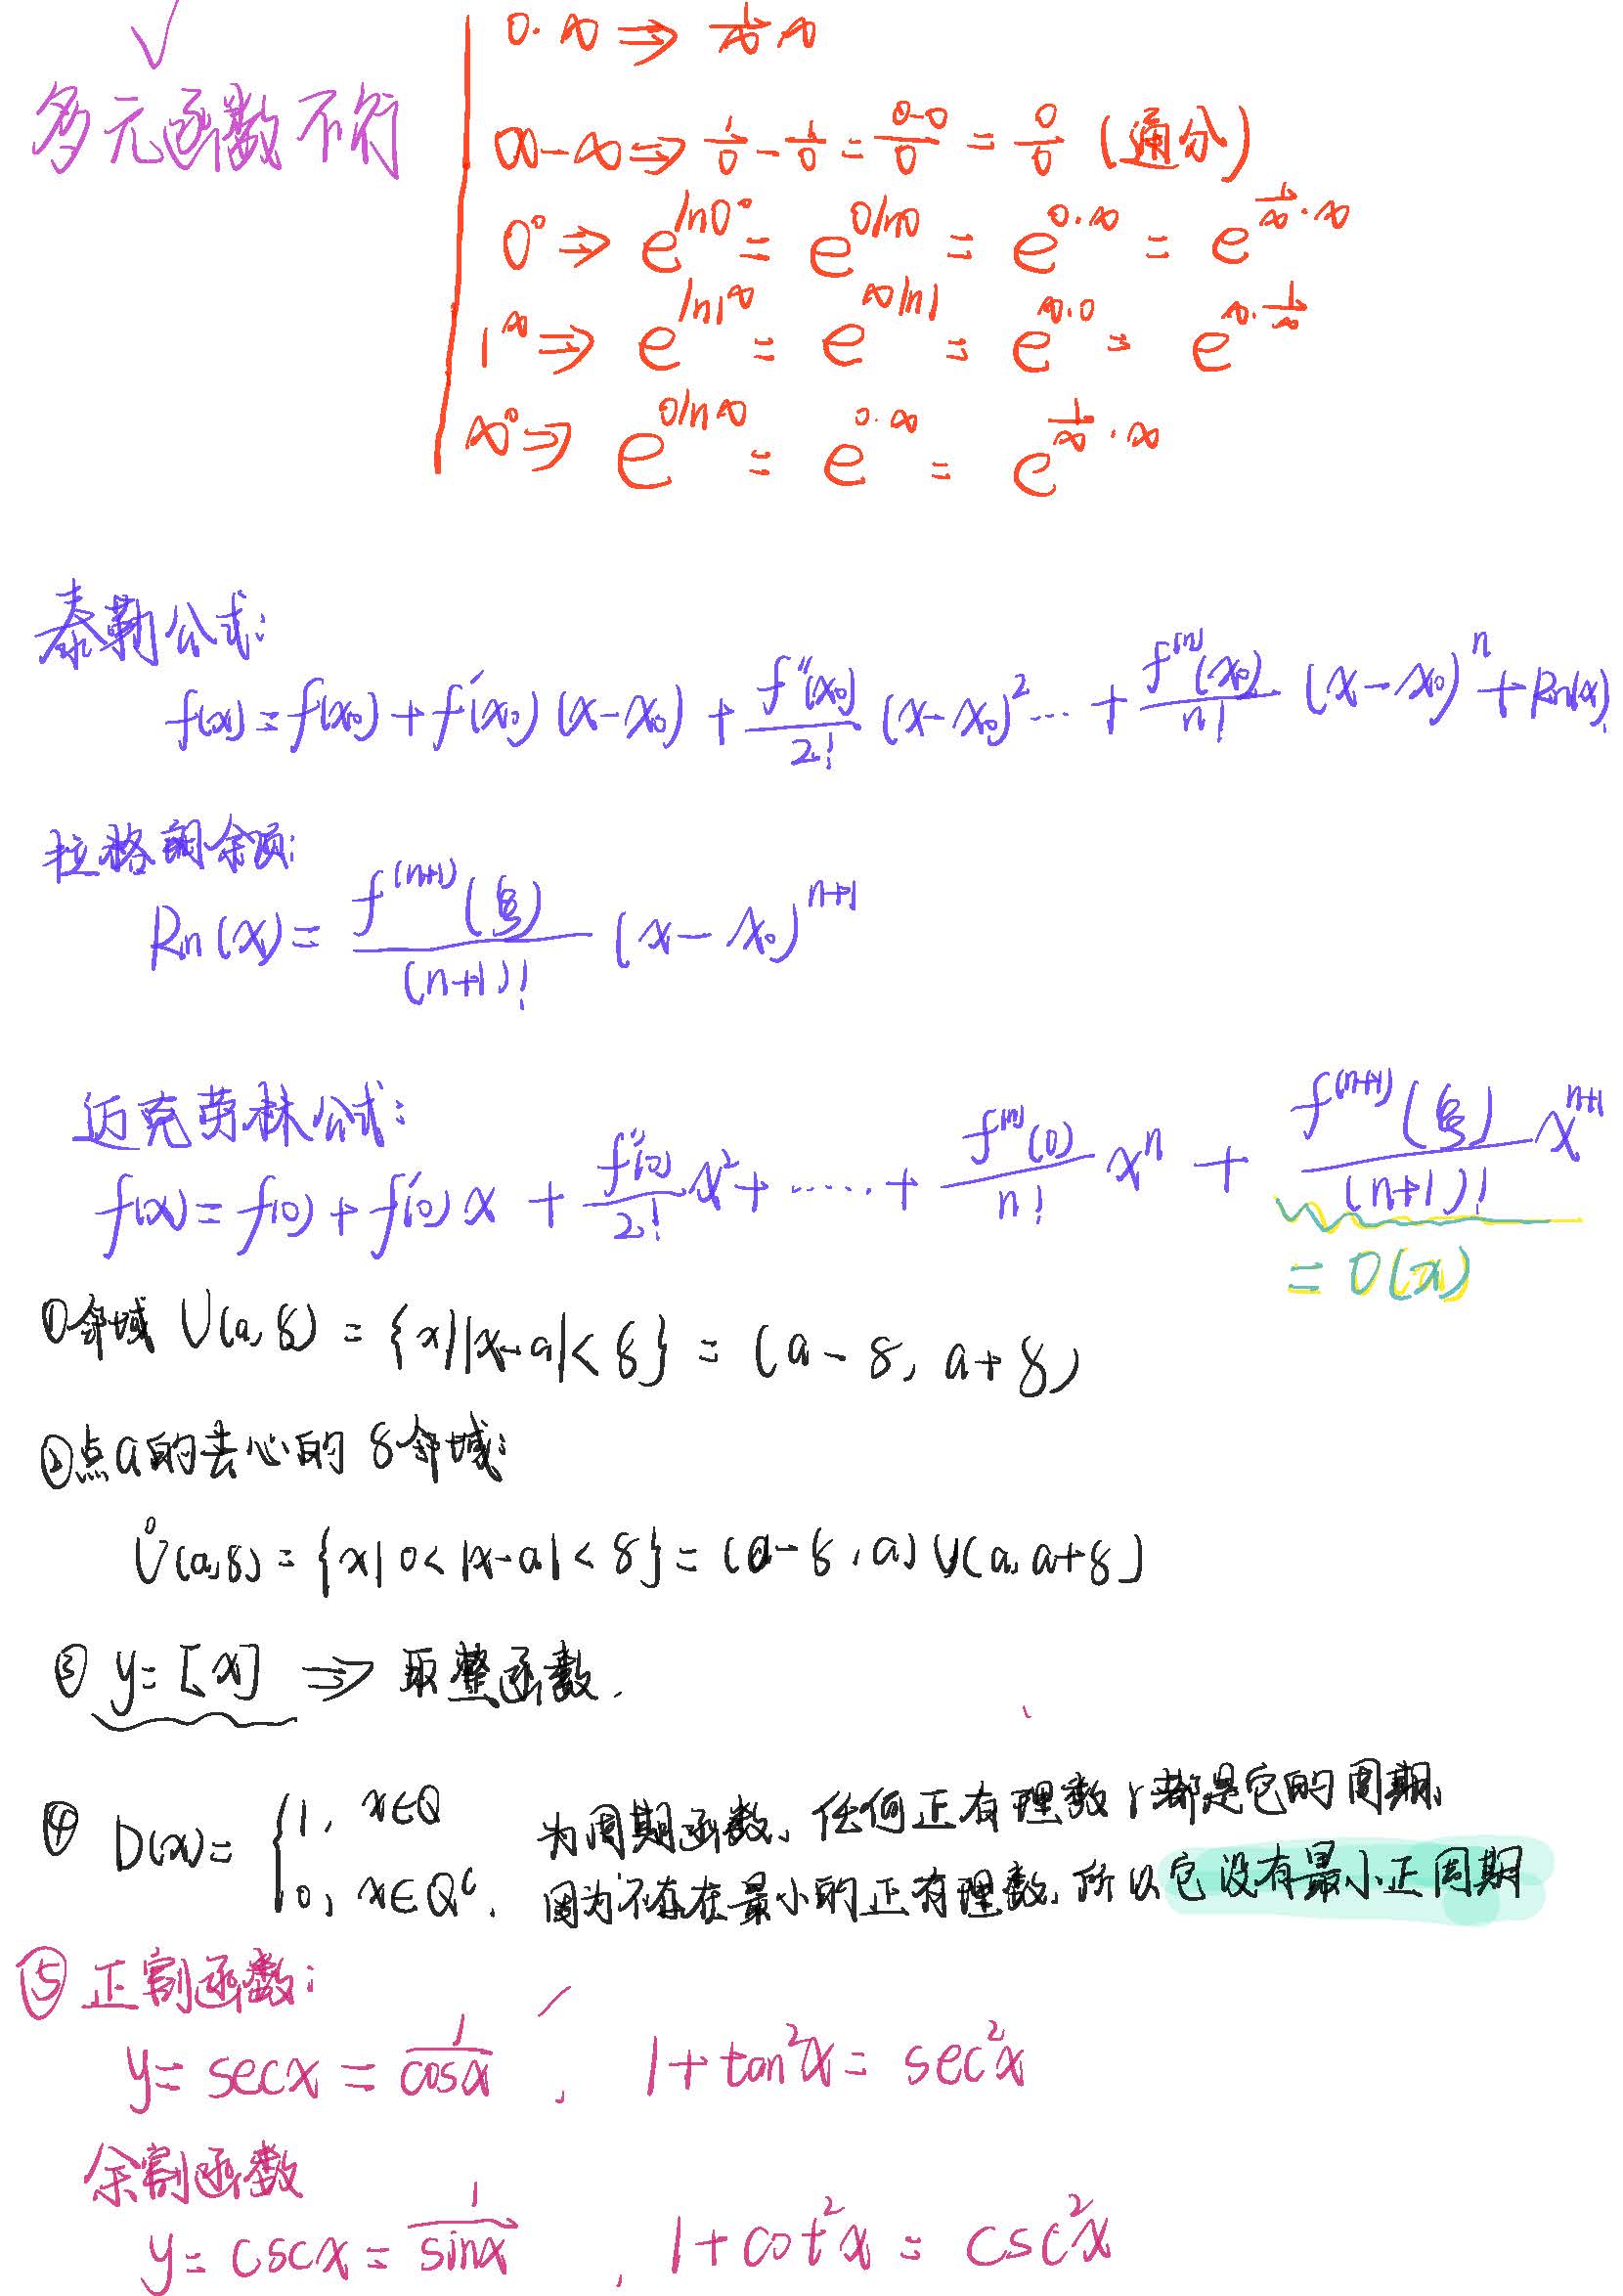 √
多元函数不行
0·∞ ⇒ 1/∞·∞
∞-∞ ⇒ 1/0 - 1/0 = (0-0)/0 = 0/0 (通分)
0^0 ⇒ e^{ln0^0} = e^{0ln0} = e^{0·∞} = e^{1/∞·∞}
1^∞ ⇒ e^{ln1^∞} = e^{∞ln1} = e^{∞·0} = e^{∞·1/∞}
∞^0 ⇒ e^{0ln∞} = e^{0·∞} = e^{1/∞·∞}
泰勒公式:
f(x) = f(x₀) + f′(x₀)(x-x₀) + f″(x₀)/2! (x-x₀)² ··· + f^{(n)}(x₀)/n! (x-x₀)^n + Rn(x)
拉格朗余项:
Rn(x) = f^{(n+1)}(ξ)/(n+1)! (x-x₀)^{n+1}
迈克劳林公式:
f(x) = f(0) + f′(0)x + f″(0)/2! x² + ······ + f^{(n)}(0)/n! x^n + f^{(n+1)}(ξ)/(n+1)! x^{n+1}
= O(x)
①邻域 U(a,δ) = {x||x-a|<δ} = (a-δ, a+δ)
②点a的去心的 δ邻域:
Ů(a,δ) = {x|0<|x-a|<δ} = (a-δ,a)∪(a,a+δ)
③ y=[x] ⇒ 取整函数.
④ D(x) = { 1, x∈Q
0, x∈Q^c.
为周期函数、任何正有理数r都是它的周期、
因为不存在最小的正有理数,所以它没有最小正周期
⑤ 正割函数:
y = secx = 1/cosx , 1+tan²x = sec²x
余割函数
y = cscx = 1/sinx , 1+cot²x = csc²x